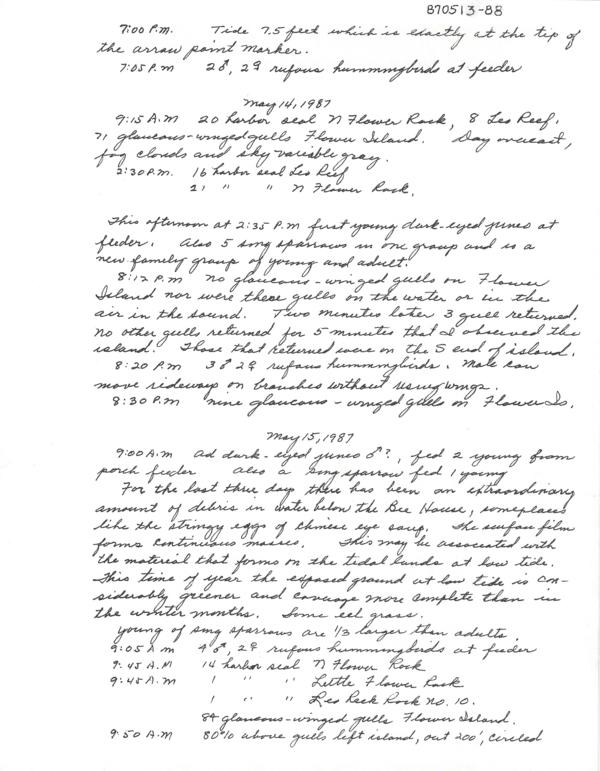 870513-88
7:00 P.M. Tide 7.5 feet which is exactly at the tip of
the arrow point marker.
7:05 P.M 2♂, 2♀ rufous hummingbirds at feeder
May 14, 1987
9:15 A.M 20 harbor seal N Flower Rock, 8 Leo Reef.
71 glaucous-winged gulls Flower Island. Day overcast,
fog clouds and sky variable gray.
2:30 P.M. 16 harbor seal Leo Reef
21 " " N Flower Rock.
This afternoon at 2:35 P.M first young dark-eyed junco at
feeder. Also 5 song sparrows in one group and is a
new family group of young and adult.
8:12 P.M no glaucous-winged gulls on Flower
Island nor were there gulls on the water or in the
air in the sound. Two minutes later 3 gull returned.
No other gulls returned for 5 minutes that I observed the
island. Those that returned were on the S end of island.
8:20 P.M 3♂ 2♀ rufous hummingbirds. Male can
move sideways on branches without using wings.
8:30 P.M nine glaucous-winged gulls on Flower Is.
May 15, 1987
9:00 A.M ad dark-eyed junco ♂?, fed 2 young from
porch feeder also a song sparrow fed 1 young
For the last three days there has been an extraordinary
amount of debris in water below the Bee House, someplaces
like the stringy eggs of chinese egg soup. The surface film
forms continuous masses. This may be associated with
the material that forms on the tidal lands at low tide.
This time of year the exposed ground at low tide is con-
siderably greener and coverage more complete than in
the winter months. Some eel grass.
young of song sparrows are 1/3 larger than adults.
9:05 A M 4♂, 2♀ rufous hummingbirds at feeder
9:45 A.M 14 harbor seal N Flower Rock
9:48 A.M 1 " " Little Flower Rock
1 " " Leo Reef Rock No. 10.
84 glaucous-winged gulls Flower Island.
9:50 A.M 80% above gulls left island, out 200', circled